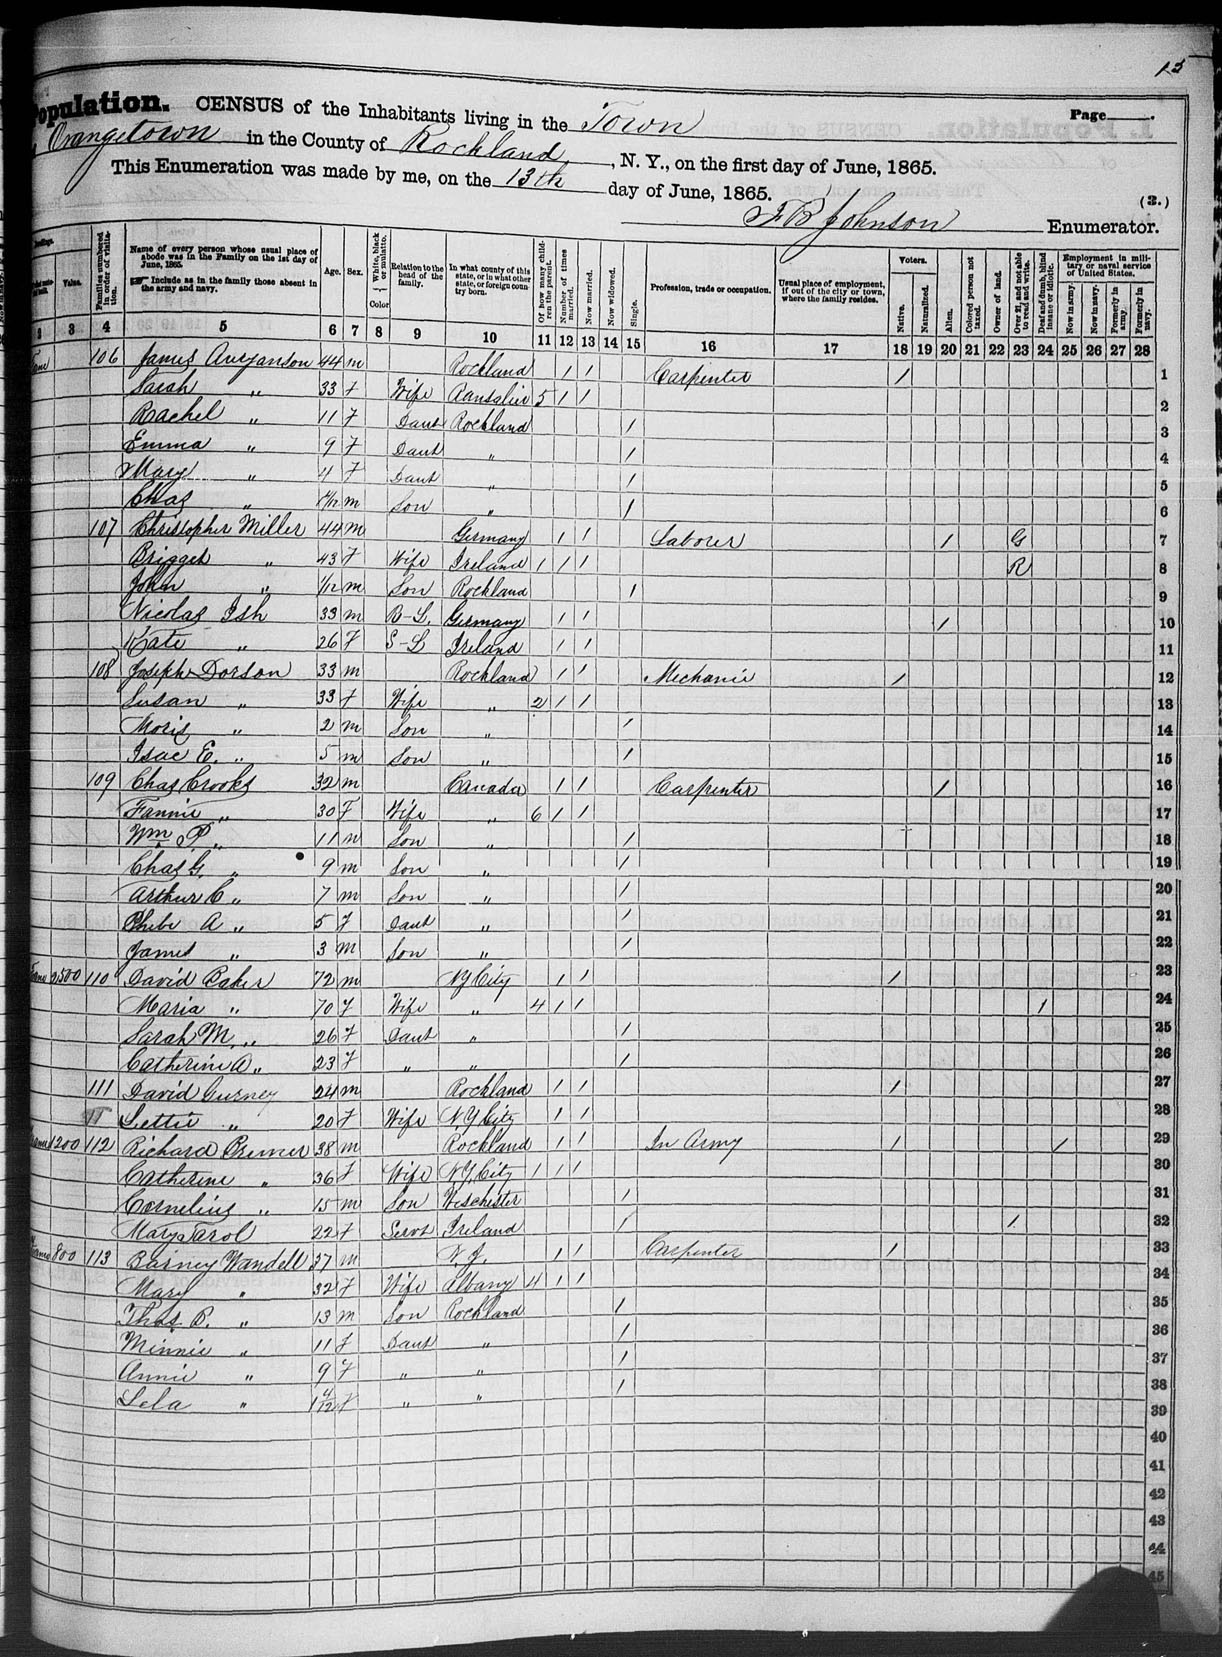 15
Population. CENSUS of the Inhabitants living in the Town Page
Orangetown in the County of Rockland, N. Y., on the first day of June, 1865.
This Enumeration was made by me, on the 13th day of June, 1865. (3.)
Johnson Enumerator.
Value. Families numbered in order of visitation. Name of every person whose usual place of abode was in the Family on the 1st day of June, 1865. Include as in the family those absent in the army and navy. Age. Sex. White, black or mulatto. Color Relation to the head of the family. In what county of this state, or in what other state, or foreign country born. Of how many children the parent. Number of times married. Now married. Now widowed. Single. Profession, trade or occupation. Usual place of employment, if out of the city or town, where the family resides. Voters. Native. Naturalized. Alien. Colored person not taxed. Owner of land. Over 21, and not able to read and write. Deaf and dumb, blind insane or idiotic. Employment in military or naval service of United States. Now in army. Now in navy. Formerly in army. Formerly in navy.
3 4 5 6 7 8 9 10 11 12 13 14 15 16 17 18 19 20 21 22 23 24 25 26 27 28
106 James 44 m Rockland 1 1 Carpenter 1 1
Sarah " 33 f Wife 5 1 1 2
Rachel " 11 F Daut Rockland 1 3
Emma " 9 F Daut " 1 4
Mary " 4 F Daut " 1 5
Chas " m Son " 1 6
107 Christopher Miller 44 m Germany 1 1 Laborer 1 G 7
Briget " 43 F Wife Ireland 1 1 1 R 8
John " 1/12 m Son Rockland 1 9
Nicolas Ish 33 m B-L. Germany 1 1 1 10
Kate " 26 F S-L Ireland 1 1 11
108 Joseph Dorson 33 m Rockland 1 1 Mechanic 1 12
Susan " 33 f Wife " 2 1 1 13
Moris " 2 m Son " 1 14
Isac E. " 5 m Son " 1 15
109 Chas Crooks 32 m Canada 1 1 Carpenter 1 16
Fannie " 30 F Wife " 6 1 1 17
Wm P " 11 m Son " 1 18
Chas G. " 9 m Son " 1 19
Arthur C " 7 m Son " 1 20
Phebe A " 5 F Daut " 1 21
James " 3 m Son " 1 22
2500 110 David Baker 72 m NY City 1 1 1 23
Maria " 70 F Wife " 4 1 1 1 24
Sarah M. " 26 F Daut " 1 25
Catherine A " 23 F " " 1 26
111 David Gurney 24 m Rockland 1 1 1 27
Lettie " 20 F Wife N.Y City 1 1 28
1200 112 Richard Premer 38 m Rockland 1 1 In Army 1 1 29
Catherine " 36 F Wife N.Y. City 1 1 1 30
Cornelius " 15 m Son Weschester 1 31
Mary 22 F Servt Ireland 1 1 32
800 113 Barney Wandell 37 m N.J. 1 1 Carpenter 1 33
Mary " 32 F Wife Albany 4 1 1 34
Thos B. " 13 m Son Rockland 1 35
Minnie " 11 F Daut " 1 36
Annie " 9 F " " 1 37
Lela " 1 4/12 F " " 1 38
39
40
41
42
43
44
45